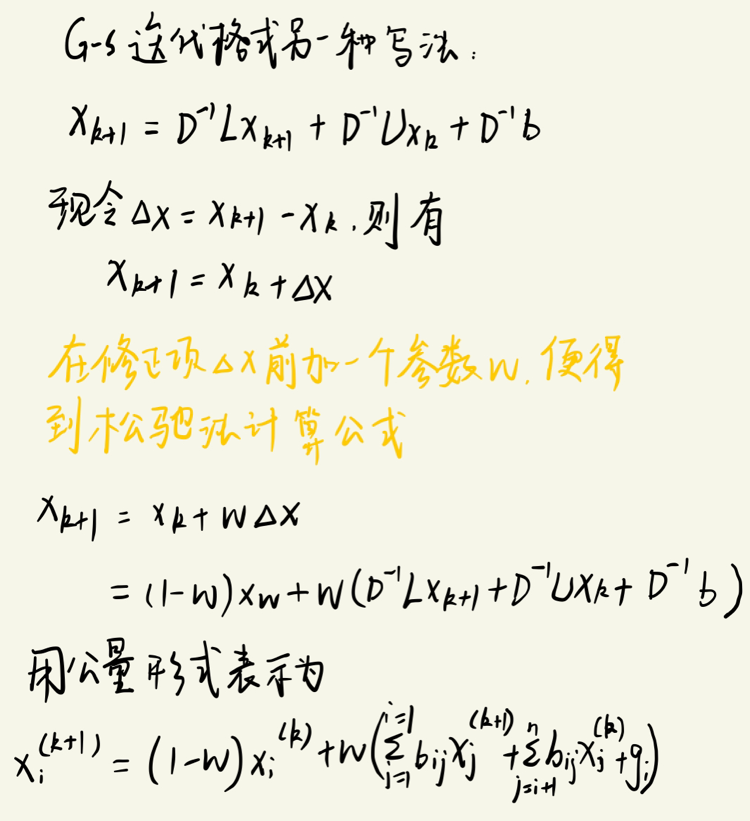 G-S迭代格式另一种写法：
x_{k+1} = D^{-1}Lx_{k+1} + D^{-1}Ux_k + D^{-1}b
现令Δx = x_{k+1} - x_k，则有
x_{k+1} = x_k + Δx
在修正项Δx前加一个参数w，便得
到松驰法计算公式
x_{k+1} = x_k + wΔx
= (1-w)x_w + w(D^{-1}Lx_{k+1} + D^{-1}Ux_k + D^{-1}b)
用分量形式表示为
x_i^{(k+1)} = (1-w)x_i^{(k)} + w(∑_{j=1}^{i=1} b_{ij}x_j^{(k+1)} + ∑_{j=i+1}^{n} b_{ij}x_j^{(k)} + g_i)